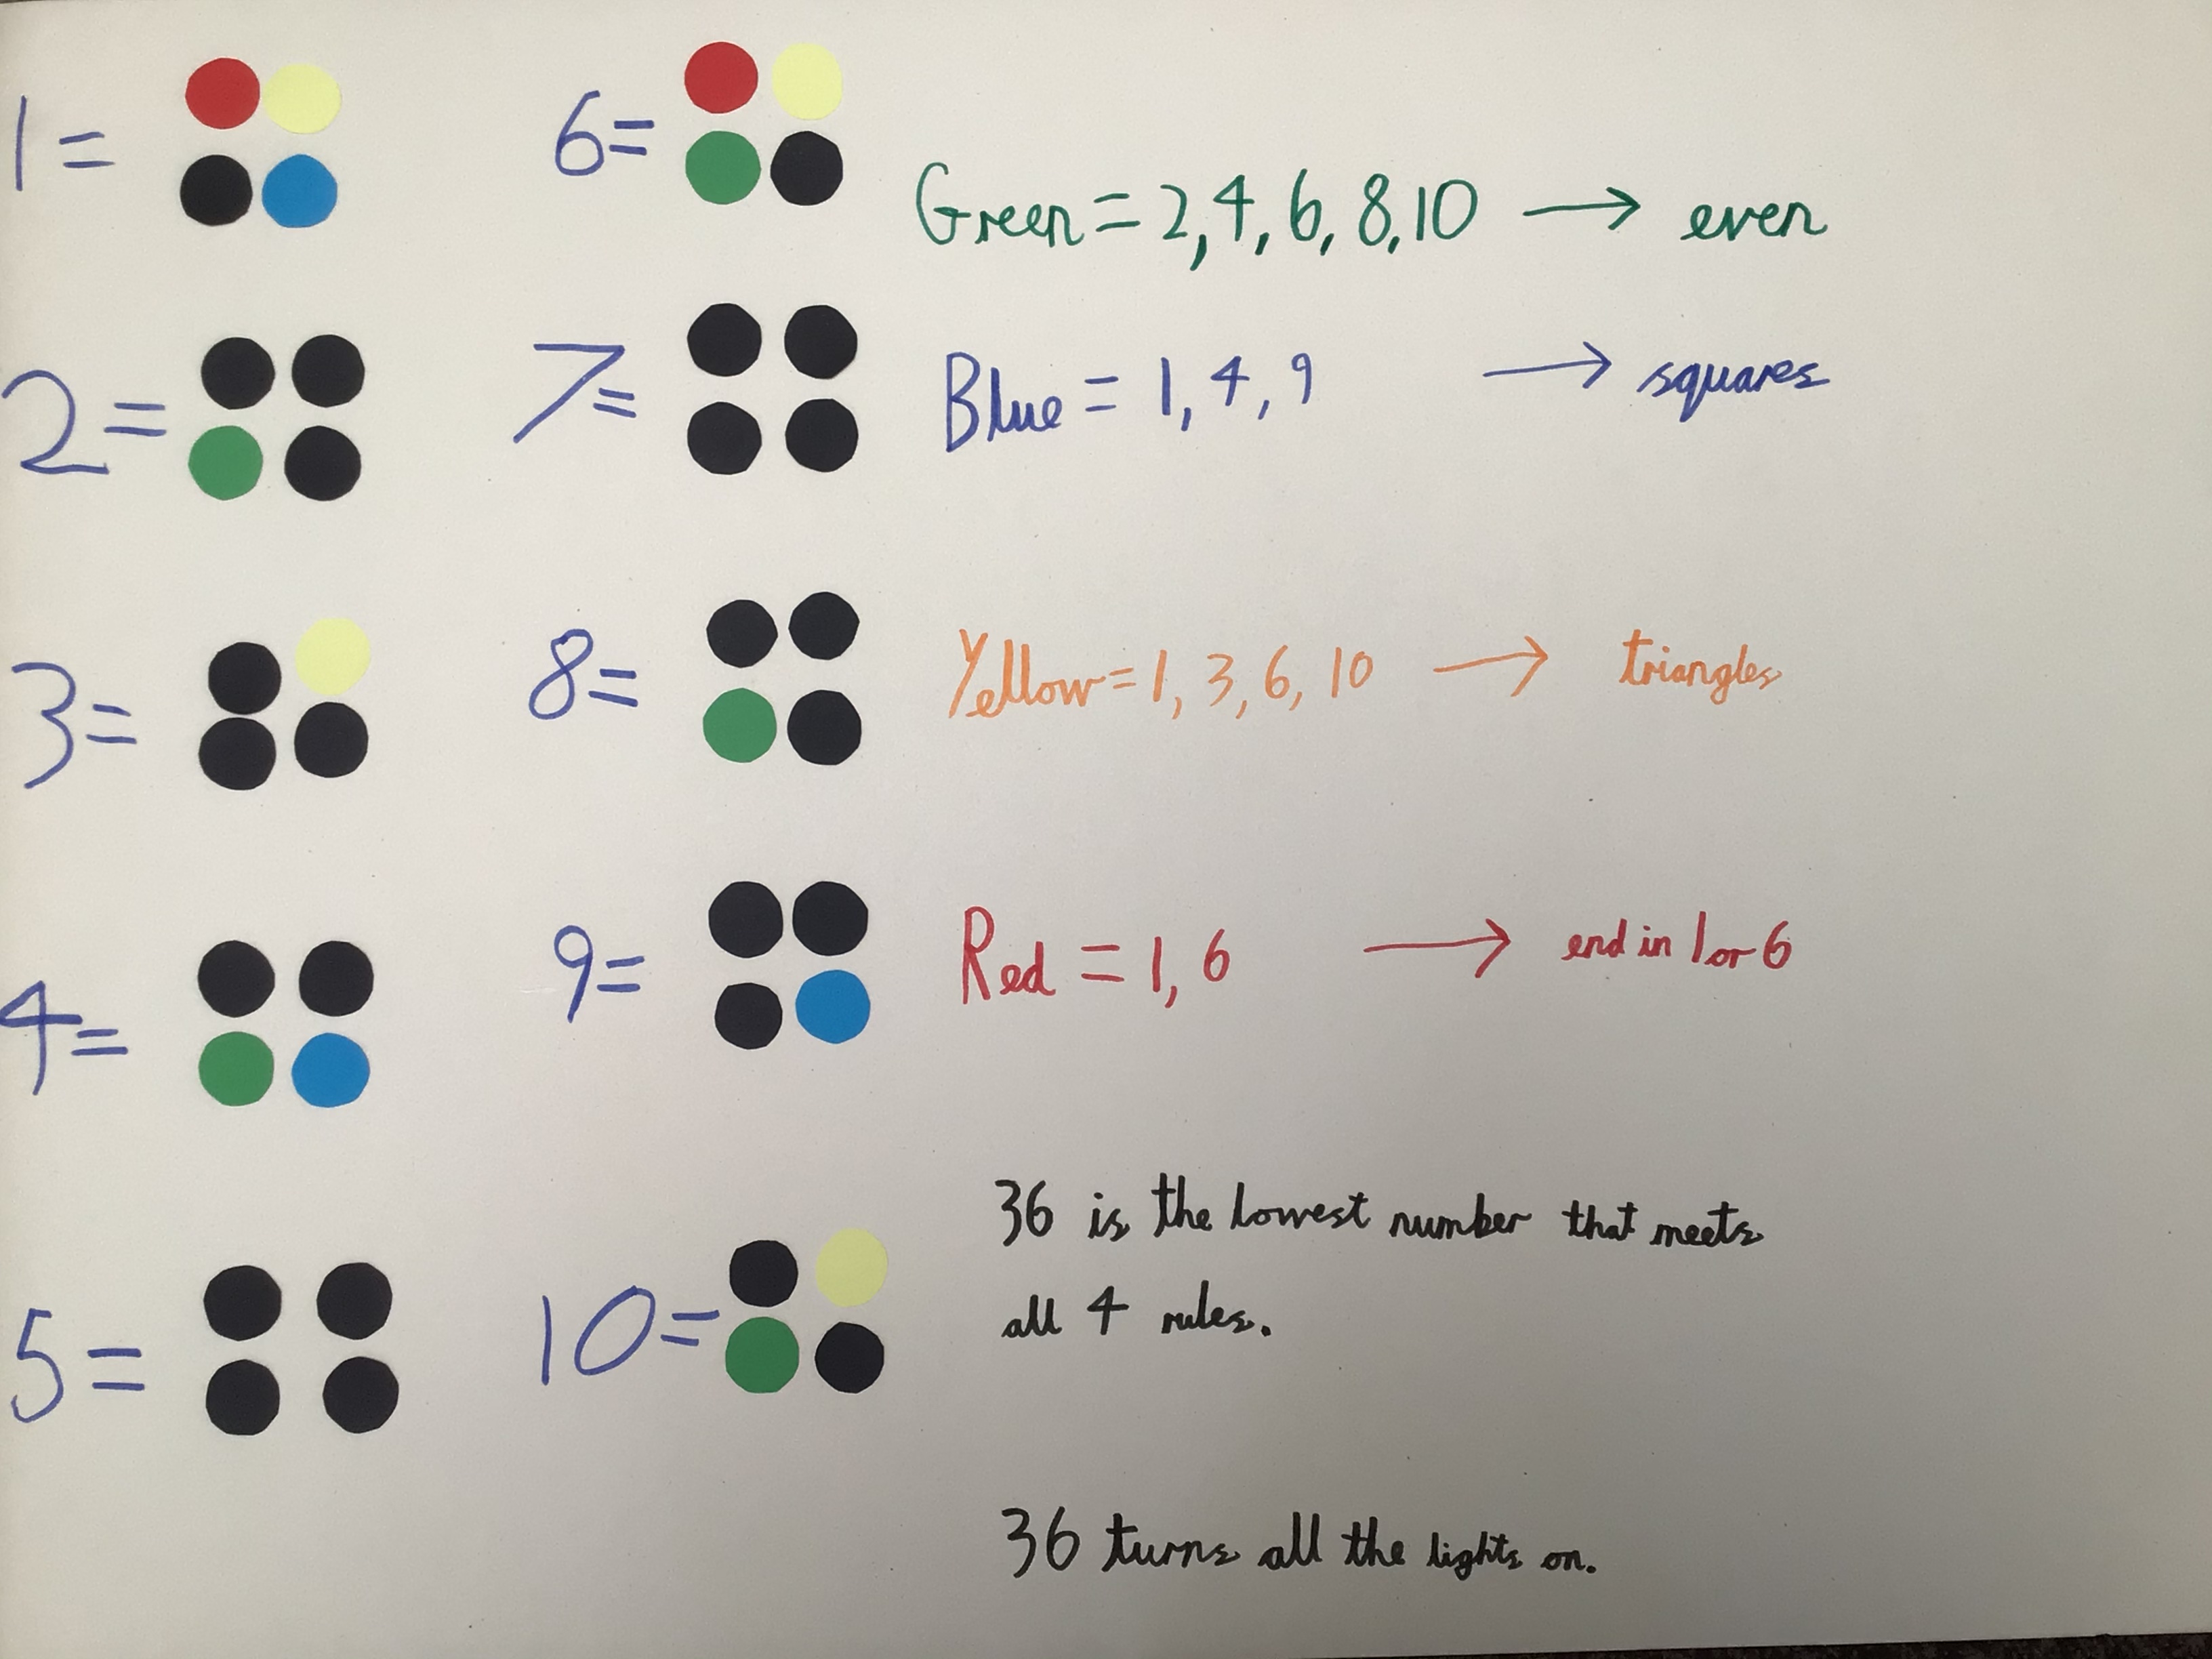 1 =
2 =
3 =
4 =
5 =
6 =
7 =
8 =
9 =
10 =
Green = 2, 4, 6, 8, 10 → even
Blue = 1, 4, 9 → squares
Yellow = 1, 3, 6, 10 → triangles
Red = 1, 6 → end in 1 or 6
36 is the lowest number that meets
all 4 rules.
36 turns all the lights on.